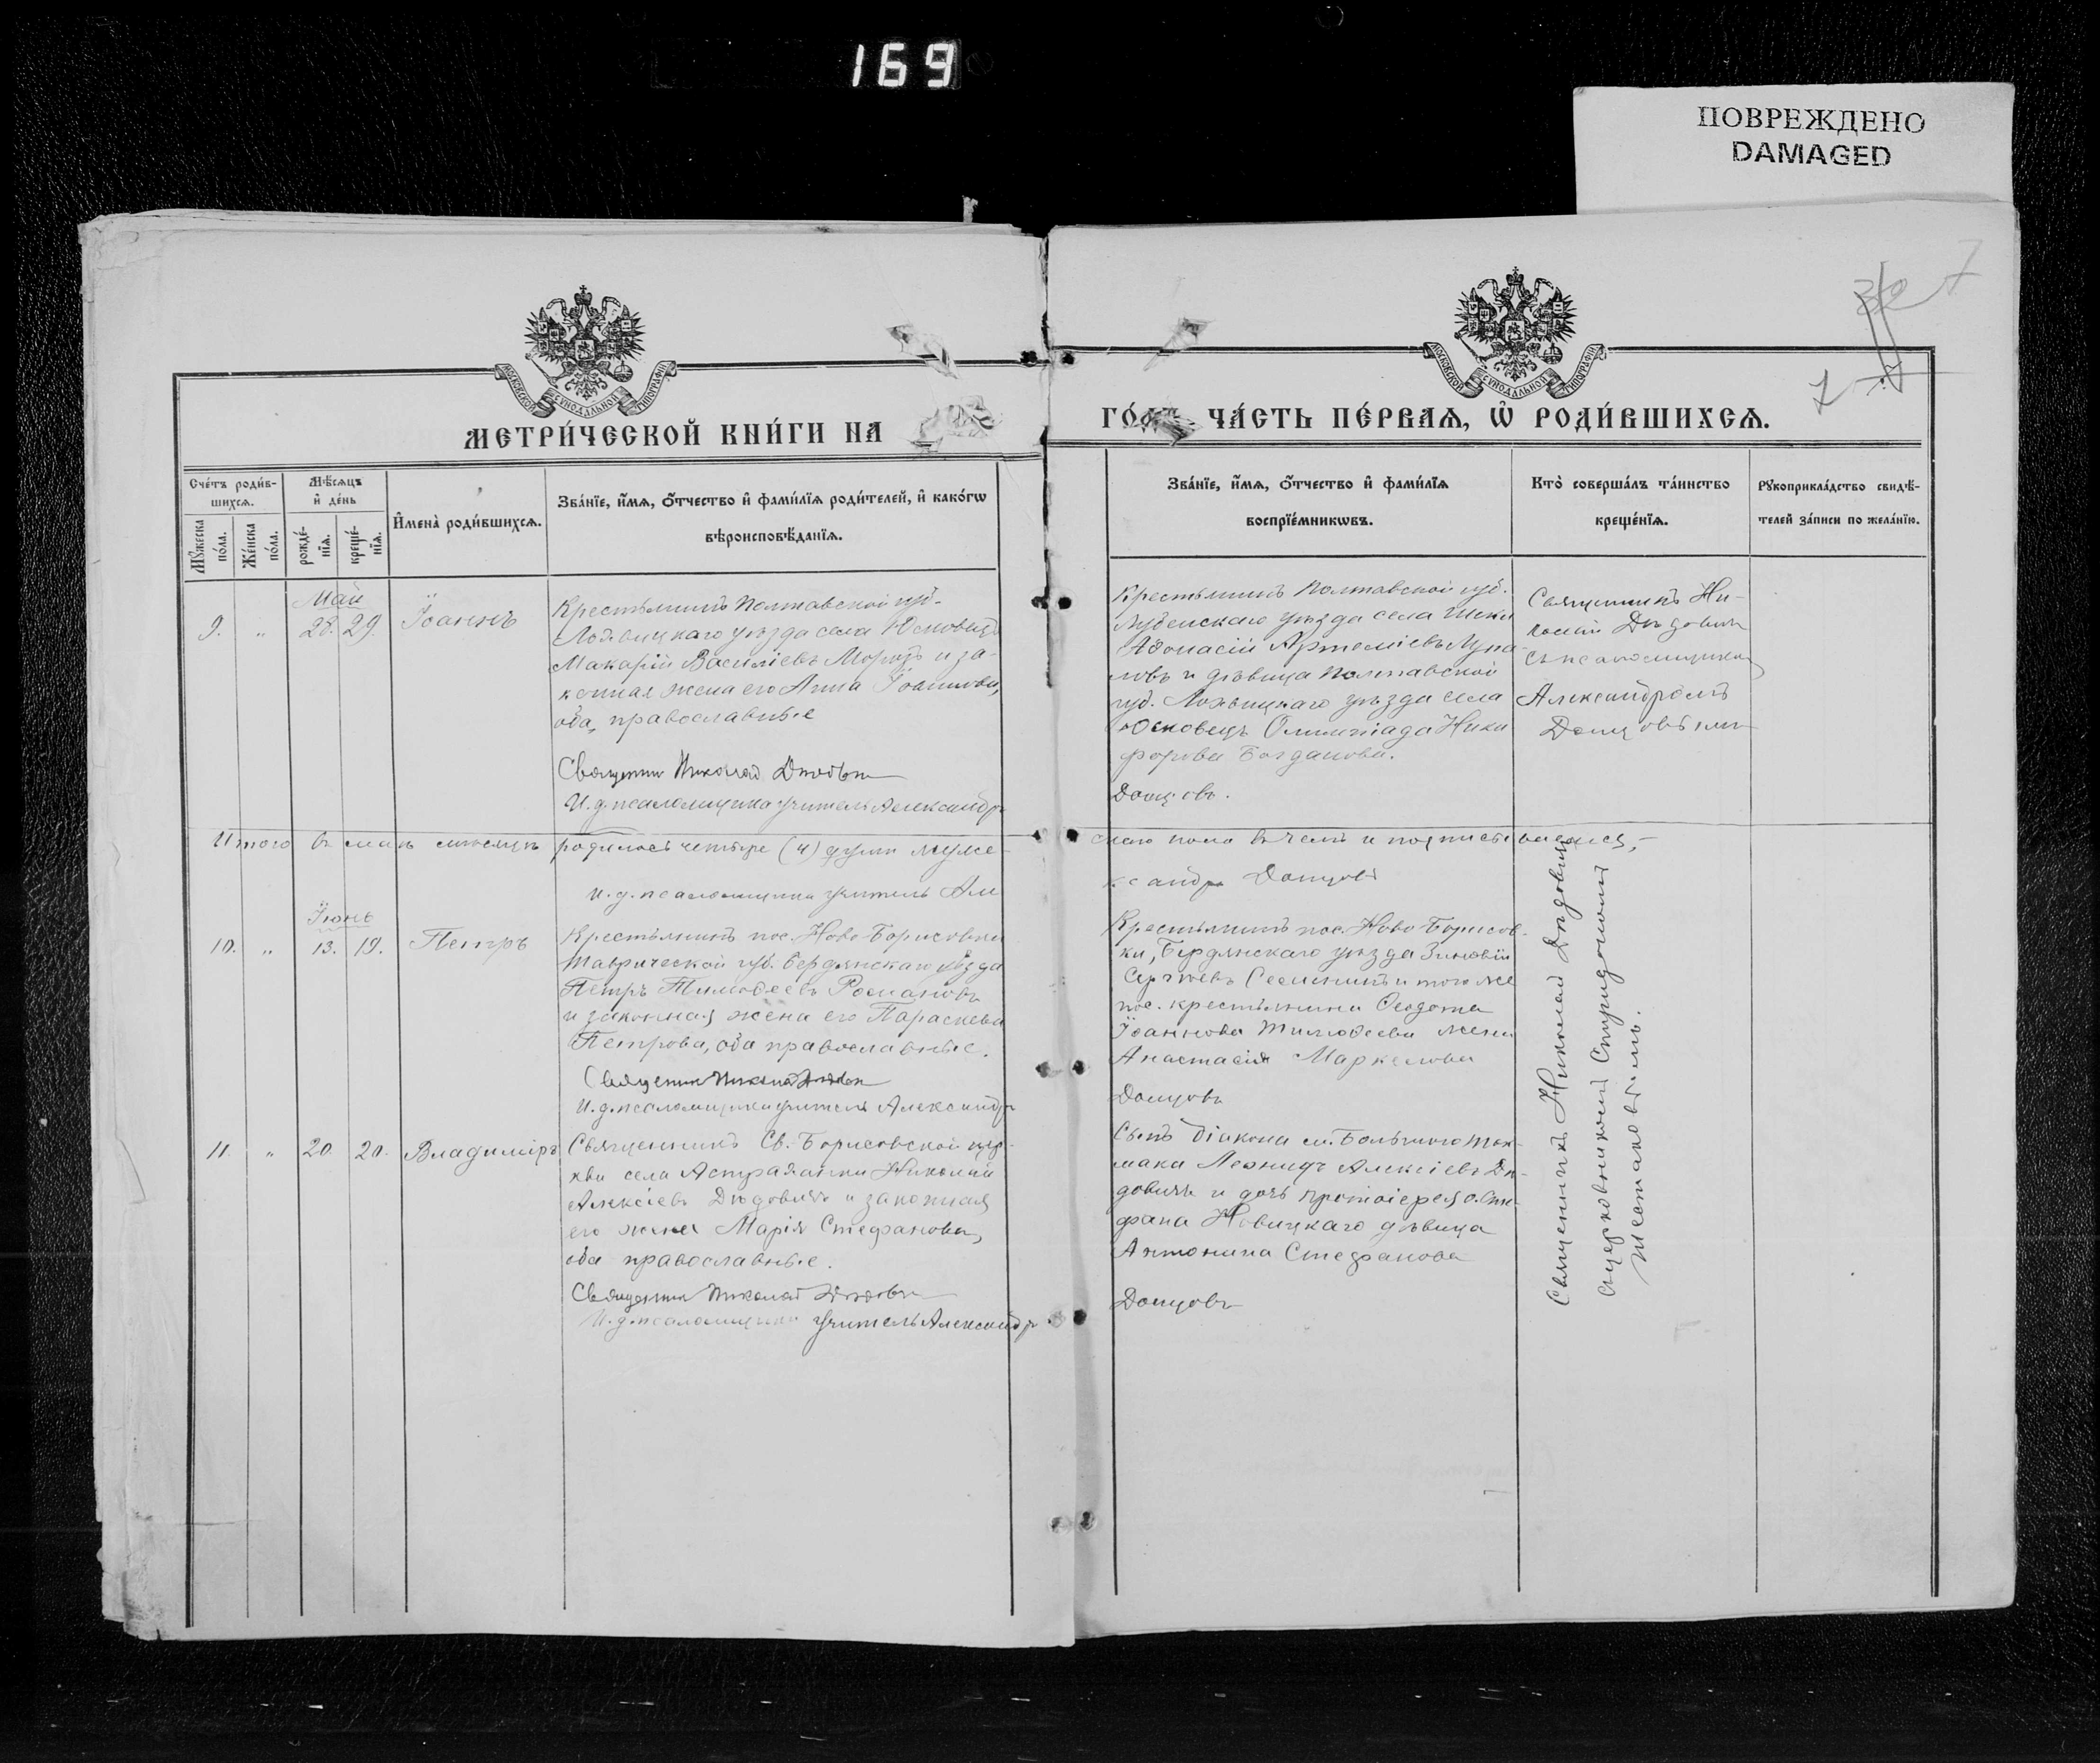 169
ПОВРЕЖДЕНО
DAMAGED
МОСКОВСКОЙ СѴНОДАЛЬНОЙ ТИПОГРАФІИ
МОСКОВСКОЙ СѴНОДАЛЬНОЙ ТИПОГРАФІИ
7
МЕТРИ́ЧЕСКОЙ КНИ́ГИ НА
ЧА́СТЬ ПЕ́РВАѦ, Ѡ҆ РОДИ́ВШИХСѦ.
Сче́тъ роди́в-
шихсѧ.
Мꙋ́жеска
по́ла.
Же́нска
по́ла.
Мѣ́сѧцъ
и҆ де́нь
рожде́-
нїѧ.
креще́-
нїѧ.
И҆мена̀ роди́вшихсѧ.
Зва́нїе, и҆́мѧ, ѻ҆́тчество и҆ фами́лїѧ роди́телей, и҆ како́гѡ
вѣроисповѣ́данїѧ.
Зва́нїе, и҆́мѧ, ѻ҆́тчество и҆ фами́лїѧ
воспрїе́мникѡвъ.
Кто̀ соверша́лъ та́инство
креще́нїѧ.
Рꙋкоприкла́дство свидѣ́-
телей за́писи по жела́нїю.
Май
9. " 28. 29. Іоаннъ
Крестьянинъ Полтавской губ.
Лохвицкаго уѣзда села
Макарій Василіевъ Морозъ и за-
конная жена его Анна
оба православные
Священникъ Николай Дѣдовичъ
И. д. псаломщика учитель Александръ
Крестьянинъ Полтавской губ.
Лубенскаго уѣзда села
Аѳонасій Артеміевъ Лупа-
ловъ и дѣвица Полтавской
губ. Лохвицкаго уѣзда села
Юсковецъ Олимпіада Ники
форова Богданова.
Донцовъ.
Священникъ Ни-
колай Дѣдовичъ
съ псаломщикомъ
Александромъ
Донцовымъ
Итого въ маѣ мѣсяцѣ родилось четыре (4) души муже-
скаго пола въ чемъ и подписываемся,-
И. д. псаломщика учитель Але
ксандръ Донцовъ
Іюнь
10. " 13. 19. Петръ
Крестьянинъ пос. Ново-Борисовки
Таврической губ. Бердянскаго уѣзда
Петръ Тимоѳеевъ Романовъ
и законная жена его Параскева
Петрова, оба православные.
Священникъ Николай Дѣдовичъ
И. д. псаломщика учитель Александръ
Крестьянинъ пос. Ново-Борисов-
ки, Бердянскаго уѣзда Зиновій
Сергѣевъ и того же
пос. крестьянина Ѳеодота
Іоаннова Тимоѳеева жена
Анастасія Маркелова
Донцовъ
11. " 20. 20. Владиміръ
Священникъ Св.-Борисовской цер-
кви села Астраханки Николай
Алексіевъ Дѣдовичъ и законная
его жена Марія Стефанова,
оба православные.
Священникъ Николай Дѣдовичъ
И. д. псаломщика учитель Александръ
Сынъ діакона м. Большого Ток-
мака Леонидъ Алексіевъ Дѣ-
довичъ и дочь протоіерея о. Сте-
фана Новицкаго дѣвица
Антонина Стефанова
Донцовъ
Священникъ Николай Дѣдовичъ
съ церковникомъ Спиридономъ
Шестаковымъ.